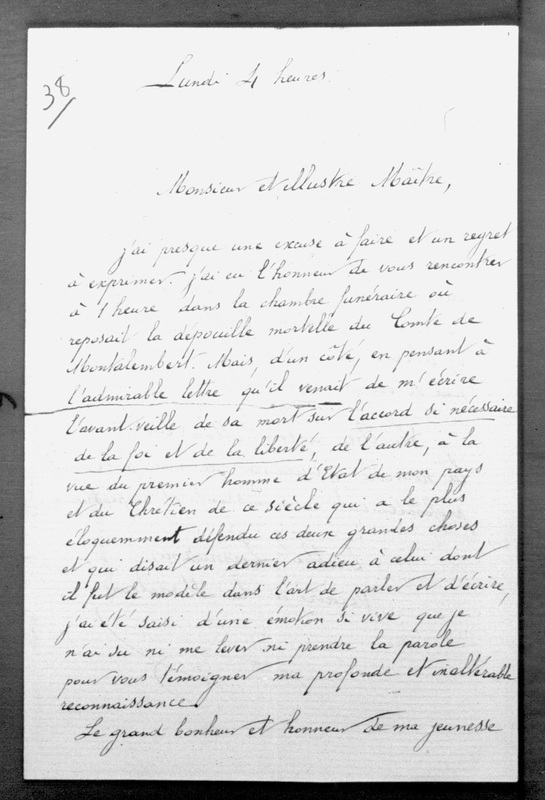 38
Lundi 4 heures.
Monsieur et illustre Maître,
j'ai presque une excuse à faire et un regret
à exprimer. j'ai eu l'honneur de vous rencontrer
à 1 heure dans la chambre funéraire où
reposait la dépouille mortelle du Comte de
Montalembert. Mais, d'un côté, en pensant à
l'admirable lettre qu'il venait de m'écrire
l'avant-veille de sa mort sur l'accord si nécessaire
de la foi et de la liberté, de l'autre, à la
vue du premier homme d'Etat de mon pays
et du Chrétien de ce siècle qui a le plus
éloquemment défendu ces deux grandes choses
et qui disait un dernier adieu à celui dont
il fut le modèle dans l'art de parler et d'écrire,
j'ai été saisi d'une émotion si vive que je
n'ai su ni me lever ni prendre la parole
pour vous témoigner ma profonde et inaltérable
reconnaissance.
Le grand bonheur et honneur de ma jeunesse